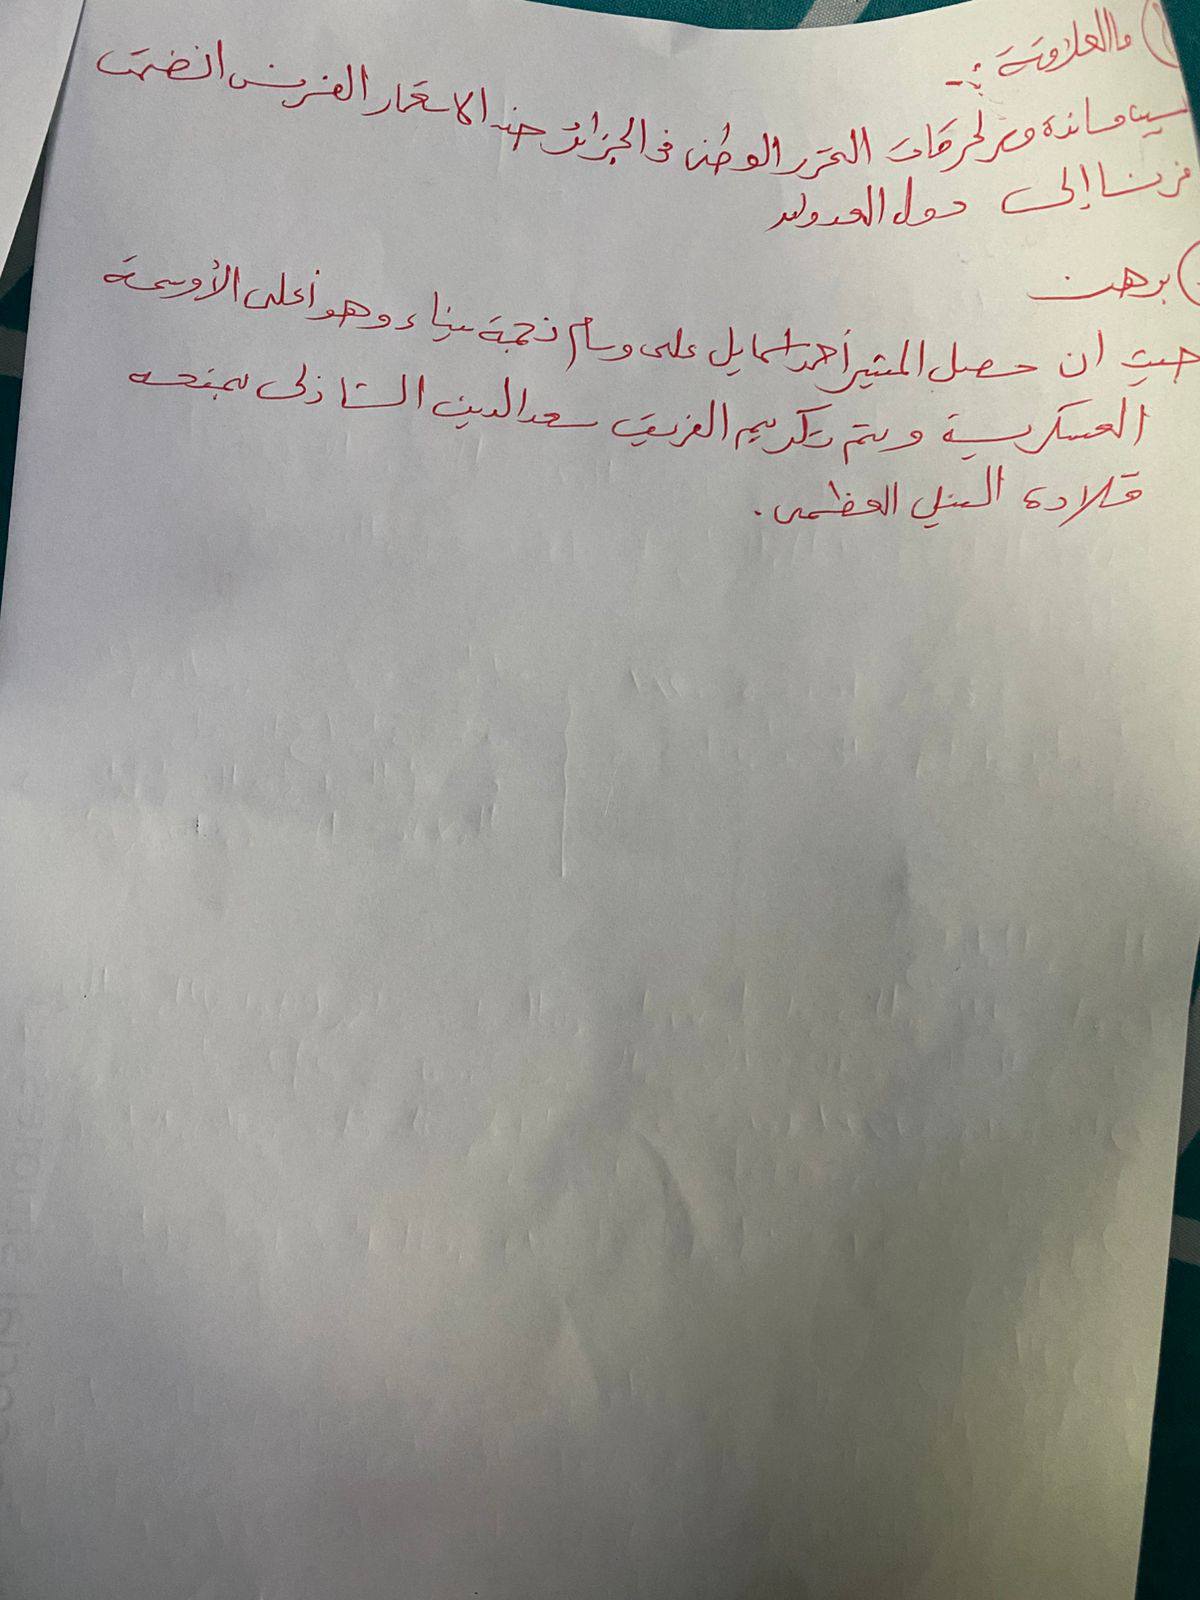 ما العلاقة :-
بسبب مساندة مصر لحركات التحرر الوطنى فى الجزائر ضد الاستعمار الفرنسى انضمت
فرنسا إلى دول العدوان
برهن
حيث ان حصل المشير أحمد اسماعيل على وسام نجمة سيناء وهو أعلى الأوسمة
العسكرية ويتم تكريم الفريق سعد الدين الشاذلى بمنحه
قلادة النيل العظمى .